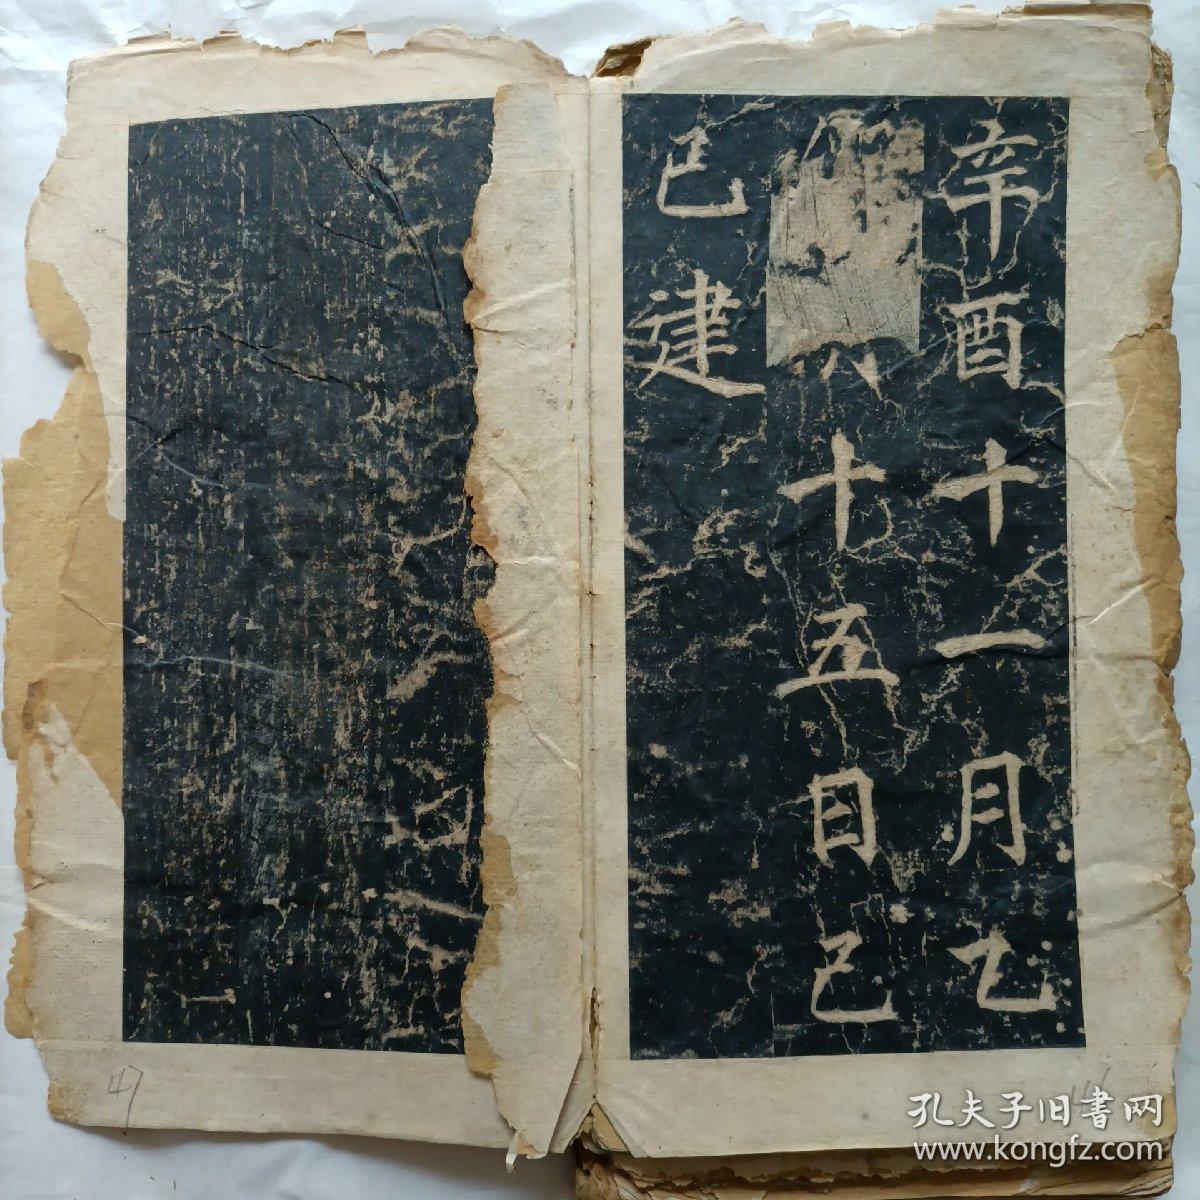 辛酉十一月乙
十五日己
巳建
47
孔夫子旧書网
www.kongfz.com